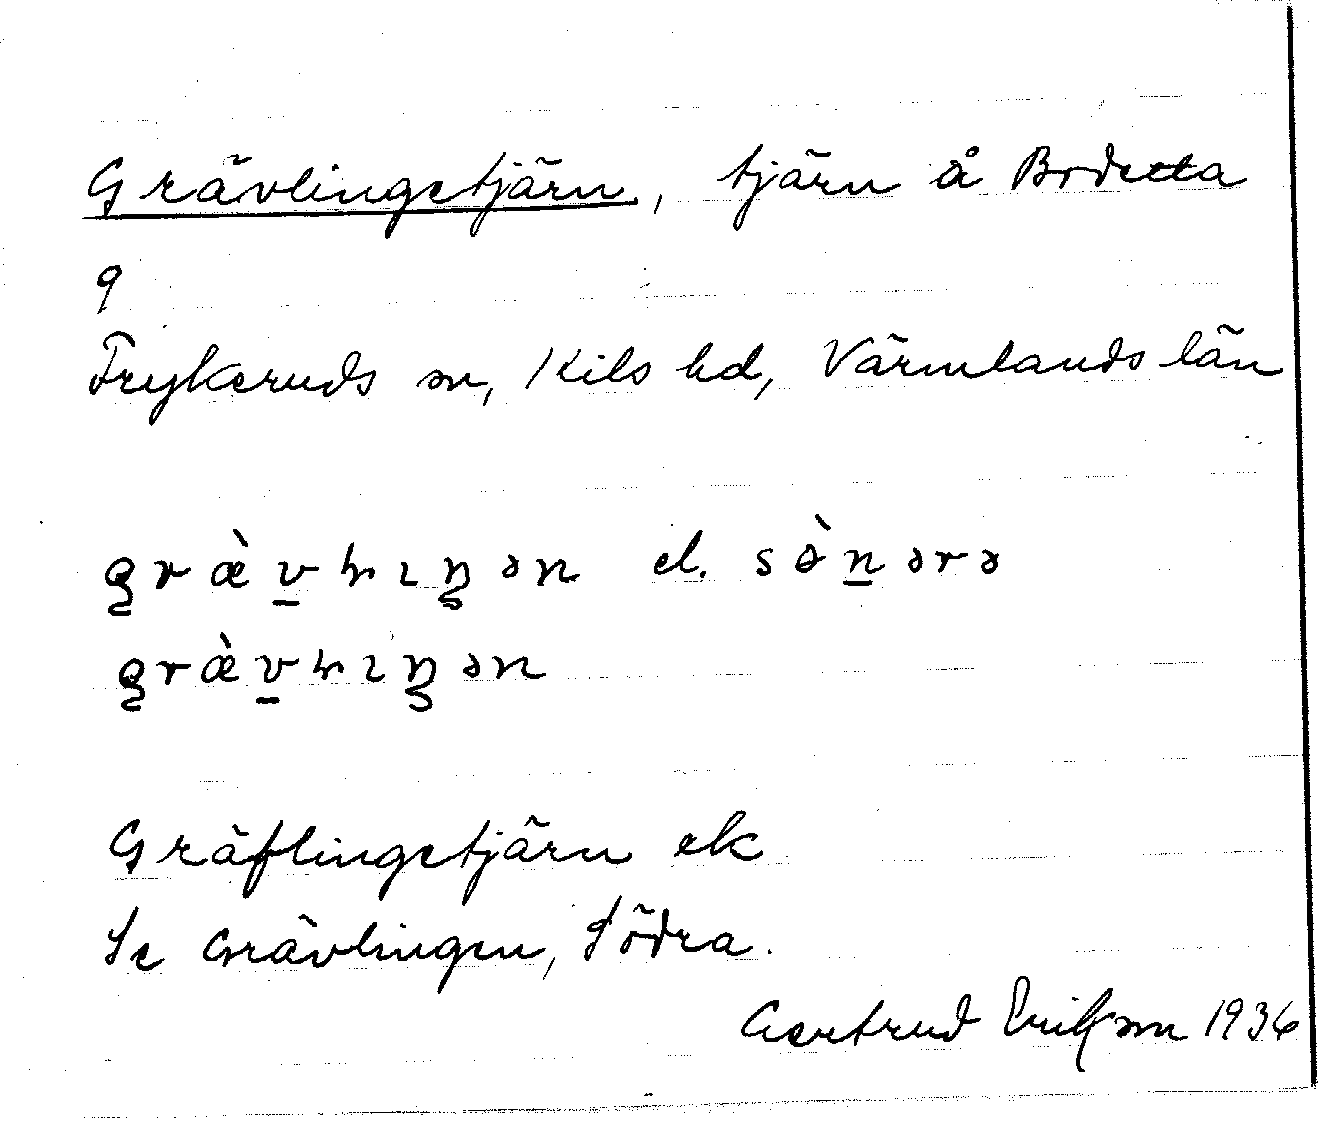 Grävlingetjärn, tjärn å Brdetta
9
Frykeruds sn, Kils hd, Värmlands län
græ̀vlıŋən el. sə̀nərə
græ̀vlıŋən
Gräflingetjärn ek
Se Grävlingen, Södra.
Gertrud Eriksson 1936